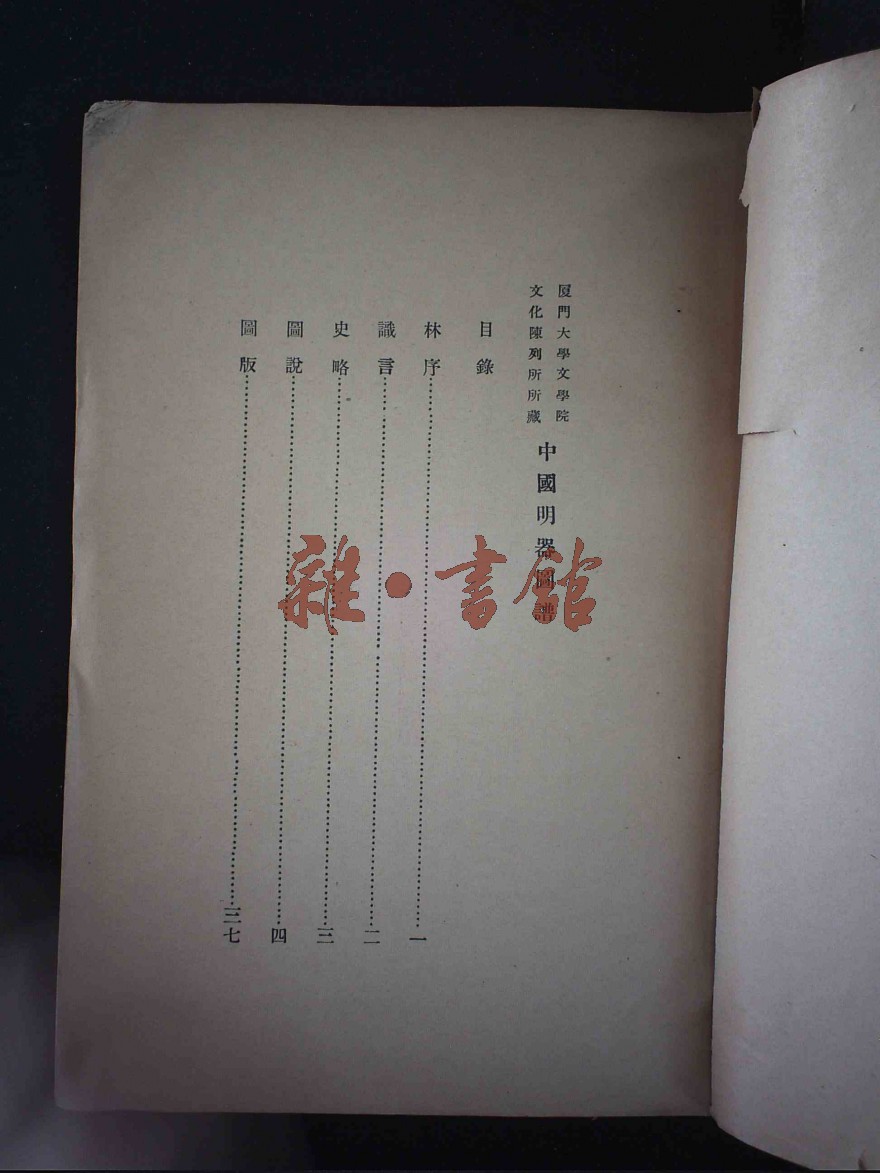 厦門大學文學院
文化陳列所所藏
中國明器圖譜
目錄
林序……一
識言……二
史略……三
圖說……四
圖版……三七
雜·書館